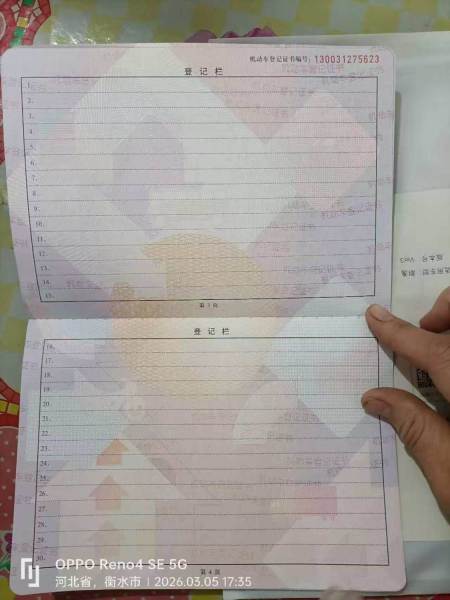 机动车登记证书编号：130031275623
登记栏
1.
2.
3.
4.
5.
6.
7.
8.
9.
10.
11.
12.
13.
14.
15.
第 3 页
登记栏
16.
17.
18.
19.
20.
21.
22.
23.
24.
25.
26.
27.
28.
29.
30.
第 4 页
版本号 Ver3
OPPO Reno4 SE 5G
河北省，衡水市 | 2026.03.05 17:35